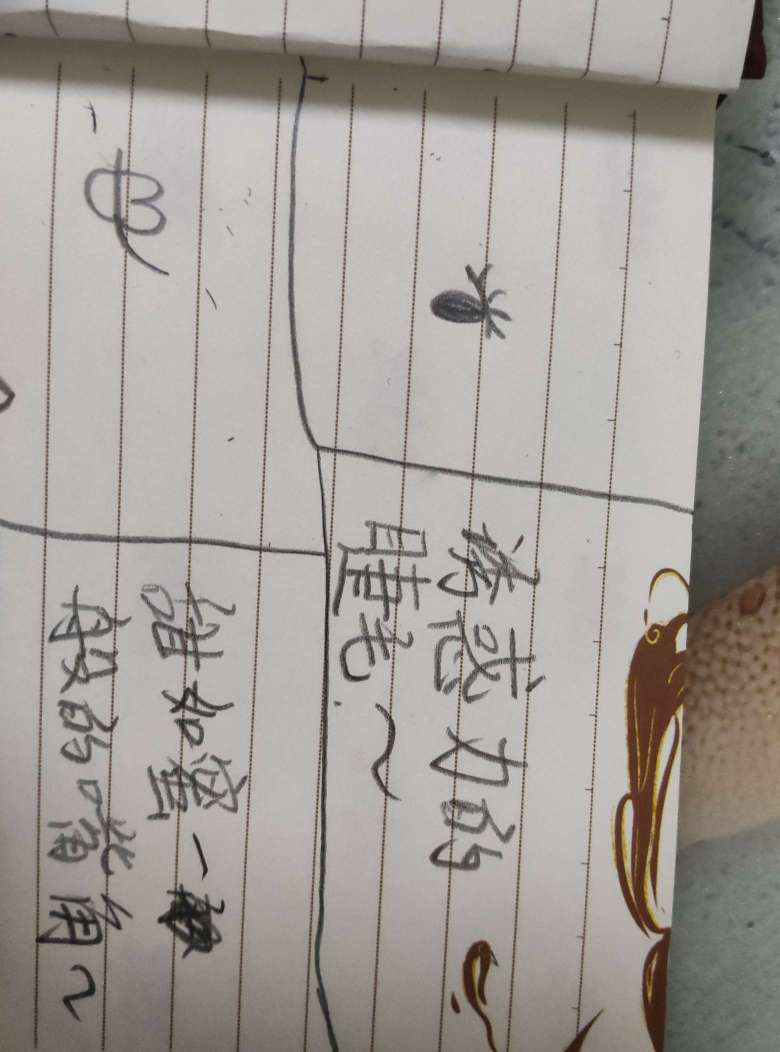 诱惑力的
睫毛~
甜如蜜一
般的嘴角~